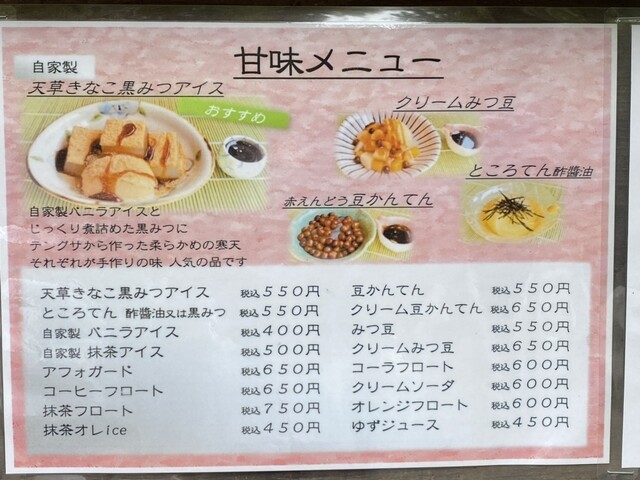 甘味メニュー
自家製
天草きなこ黒みつアイス
おすすめ
クリームみつ豆
ところてん 酢醤油
赤えんどう豆かんてん
自家製バニラアイスと
じっくり煮詰めた黒みつに
テングサから作った柔らかめの寒天
それぞれが手作りの味 人気の品です
天草きなこ黒みつアイス 税込550円
ところてん 酢醤油又は黒みつ 税込550円
自家製 バニラアイス 税込400円
自家製 抹茶アイス 税込500円
アフォガード 税込650円
コーヒーフロート 税込650円
抹茶フロート 税込750円
抹茶オレice 税込450円
豆かんてん 税込550円
クリーム豆かんてん 税込650円
みつ豆 税込550円
クリームみつ豆 税込650円
コーラフロート 税込600円
クリームソーダ 税込600円
オレンジフロート 税込600円
ゆずジュース 税込450円